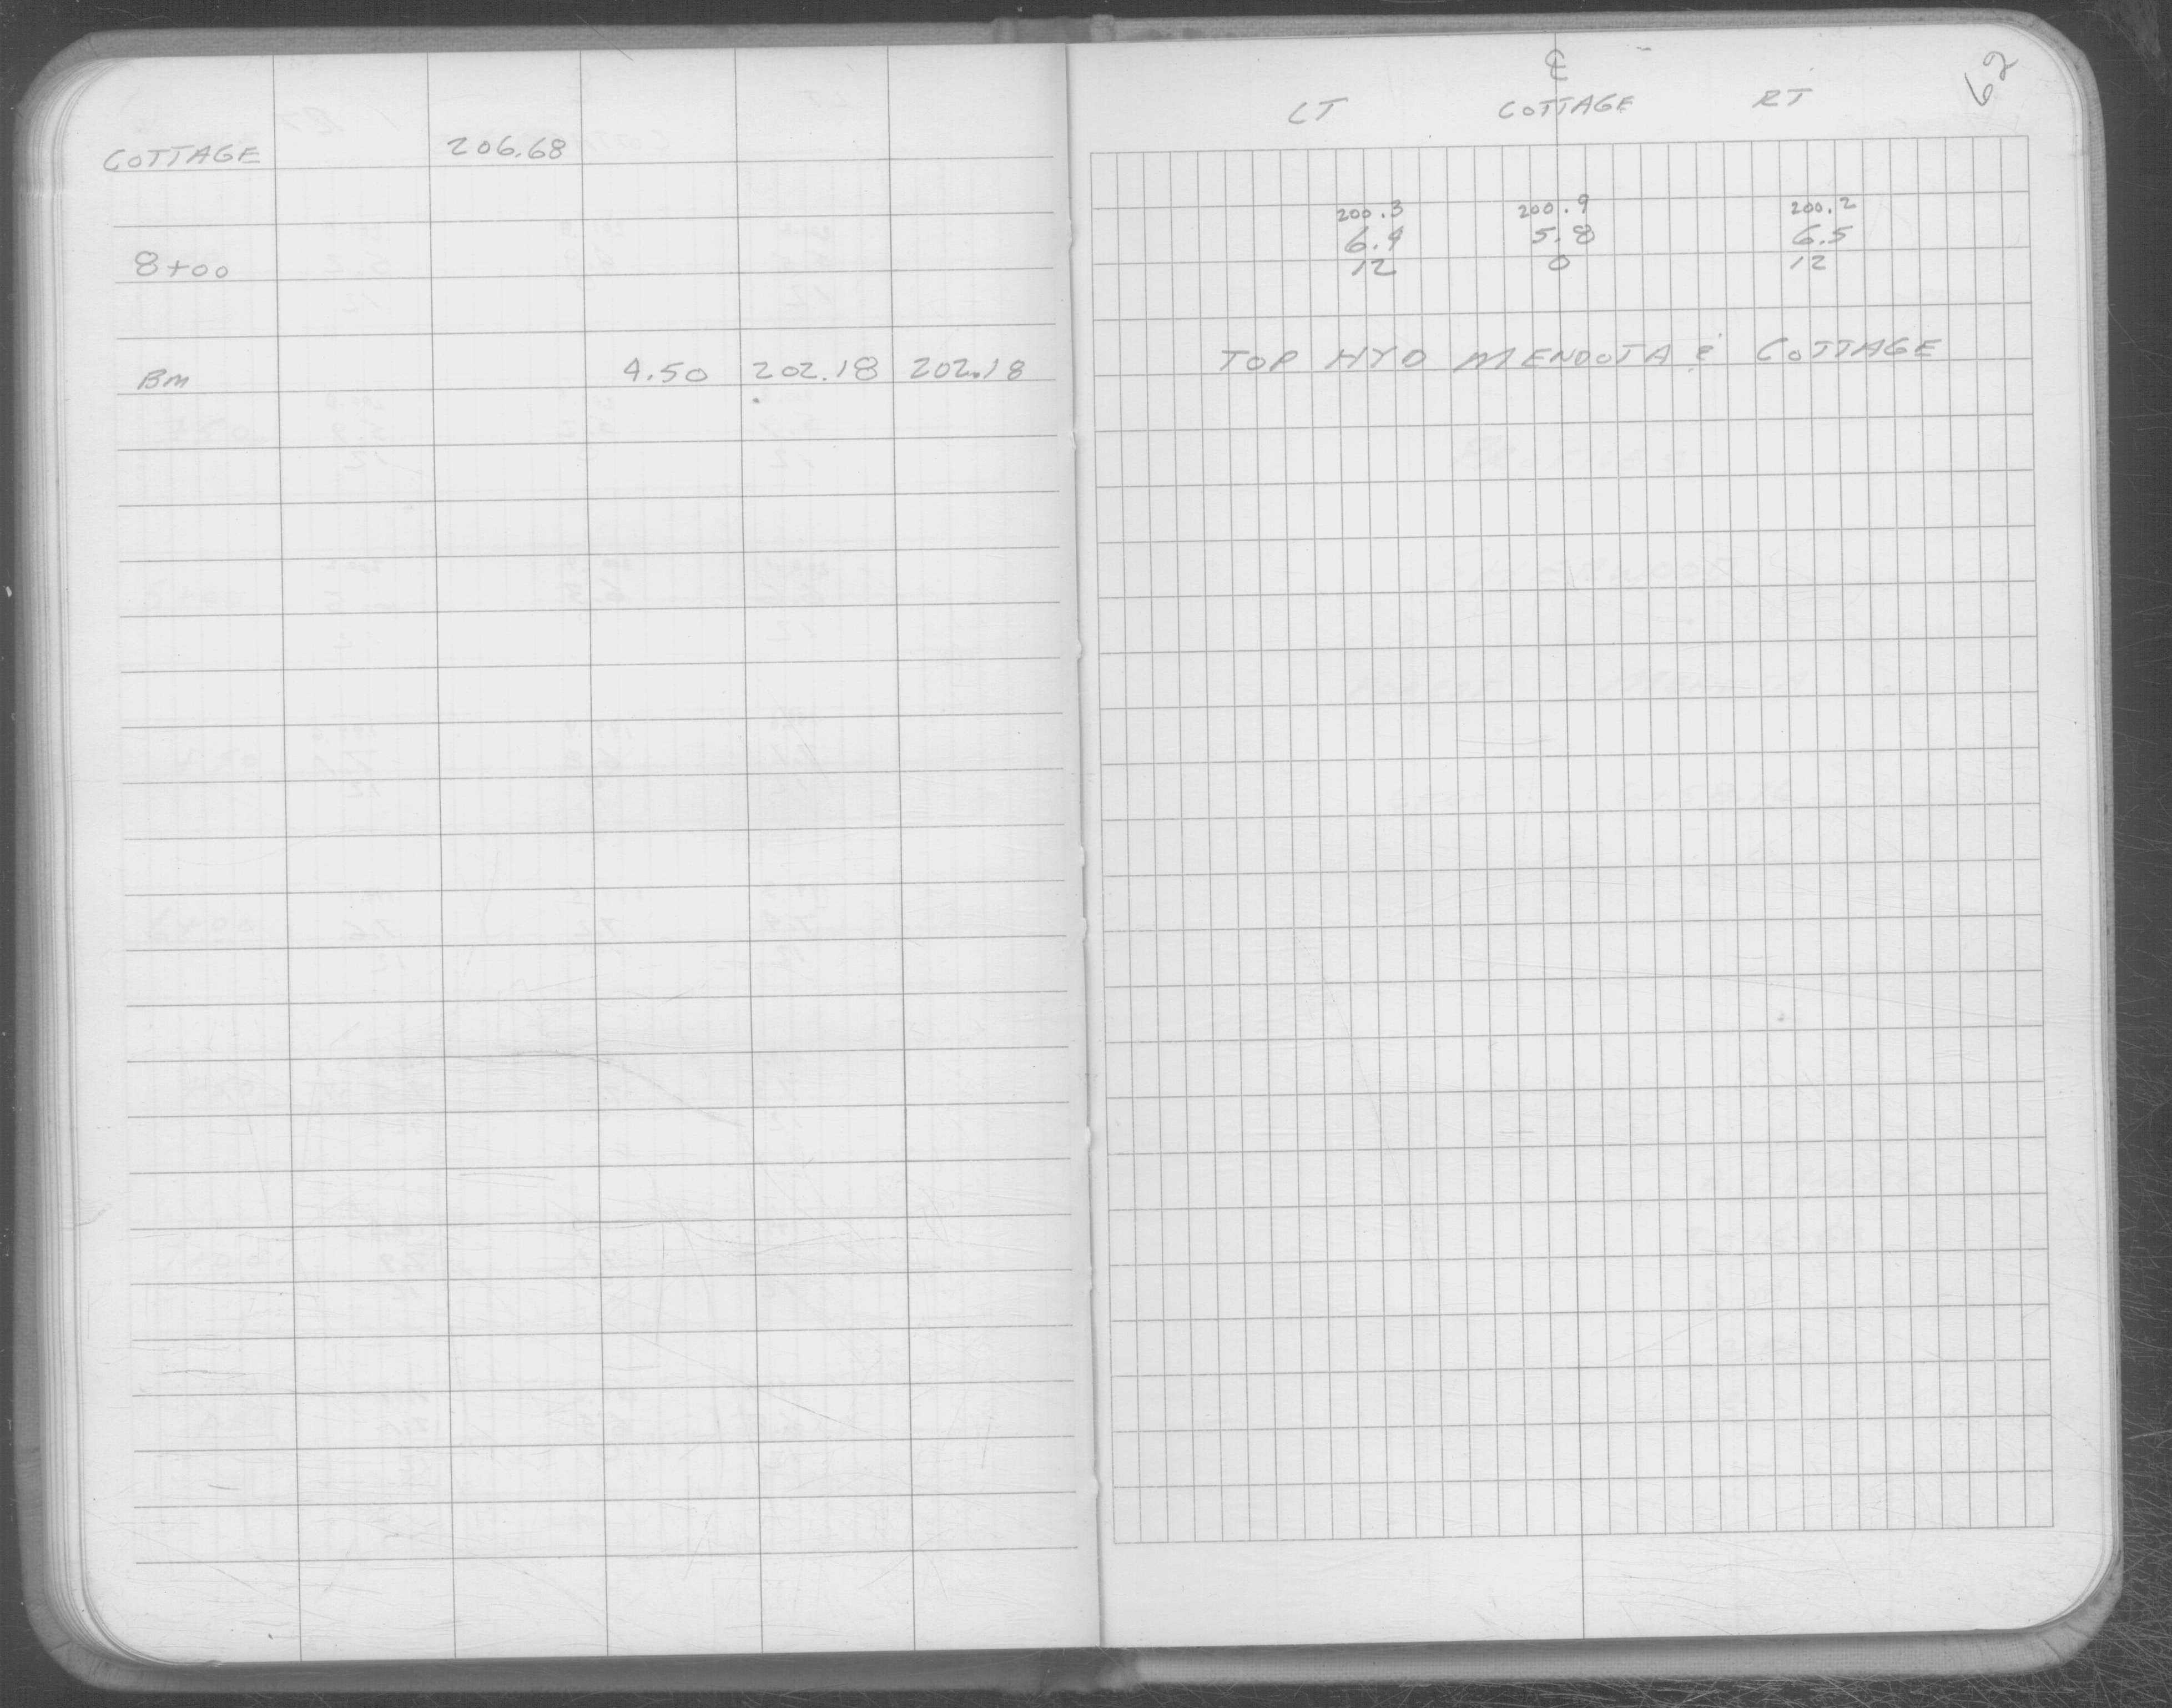 COTTAGE 206.68
8+00
BM 4.50 202.18 202.18
62
℄
LT COTTAGE RT
200.3 200.9 200.2
6.4 5.8 6.5
12 0 12
TOP HYD MENDOTA & COTTAGE